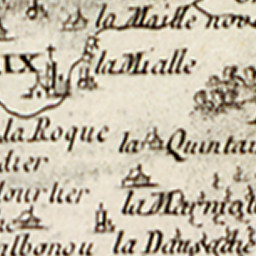 la Maille nov
IX
la Mialle
la Roque
la Quintai
dier
lourlier
la Marniol
albonou
la Daussache